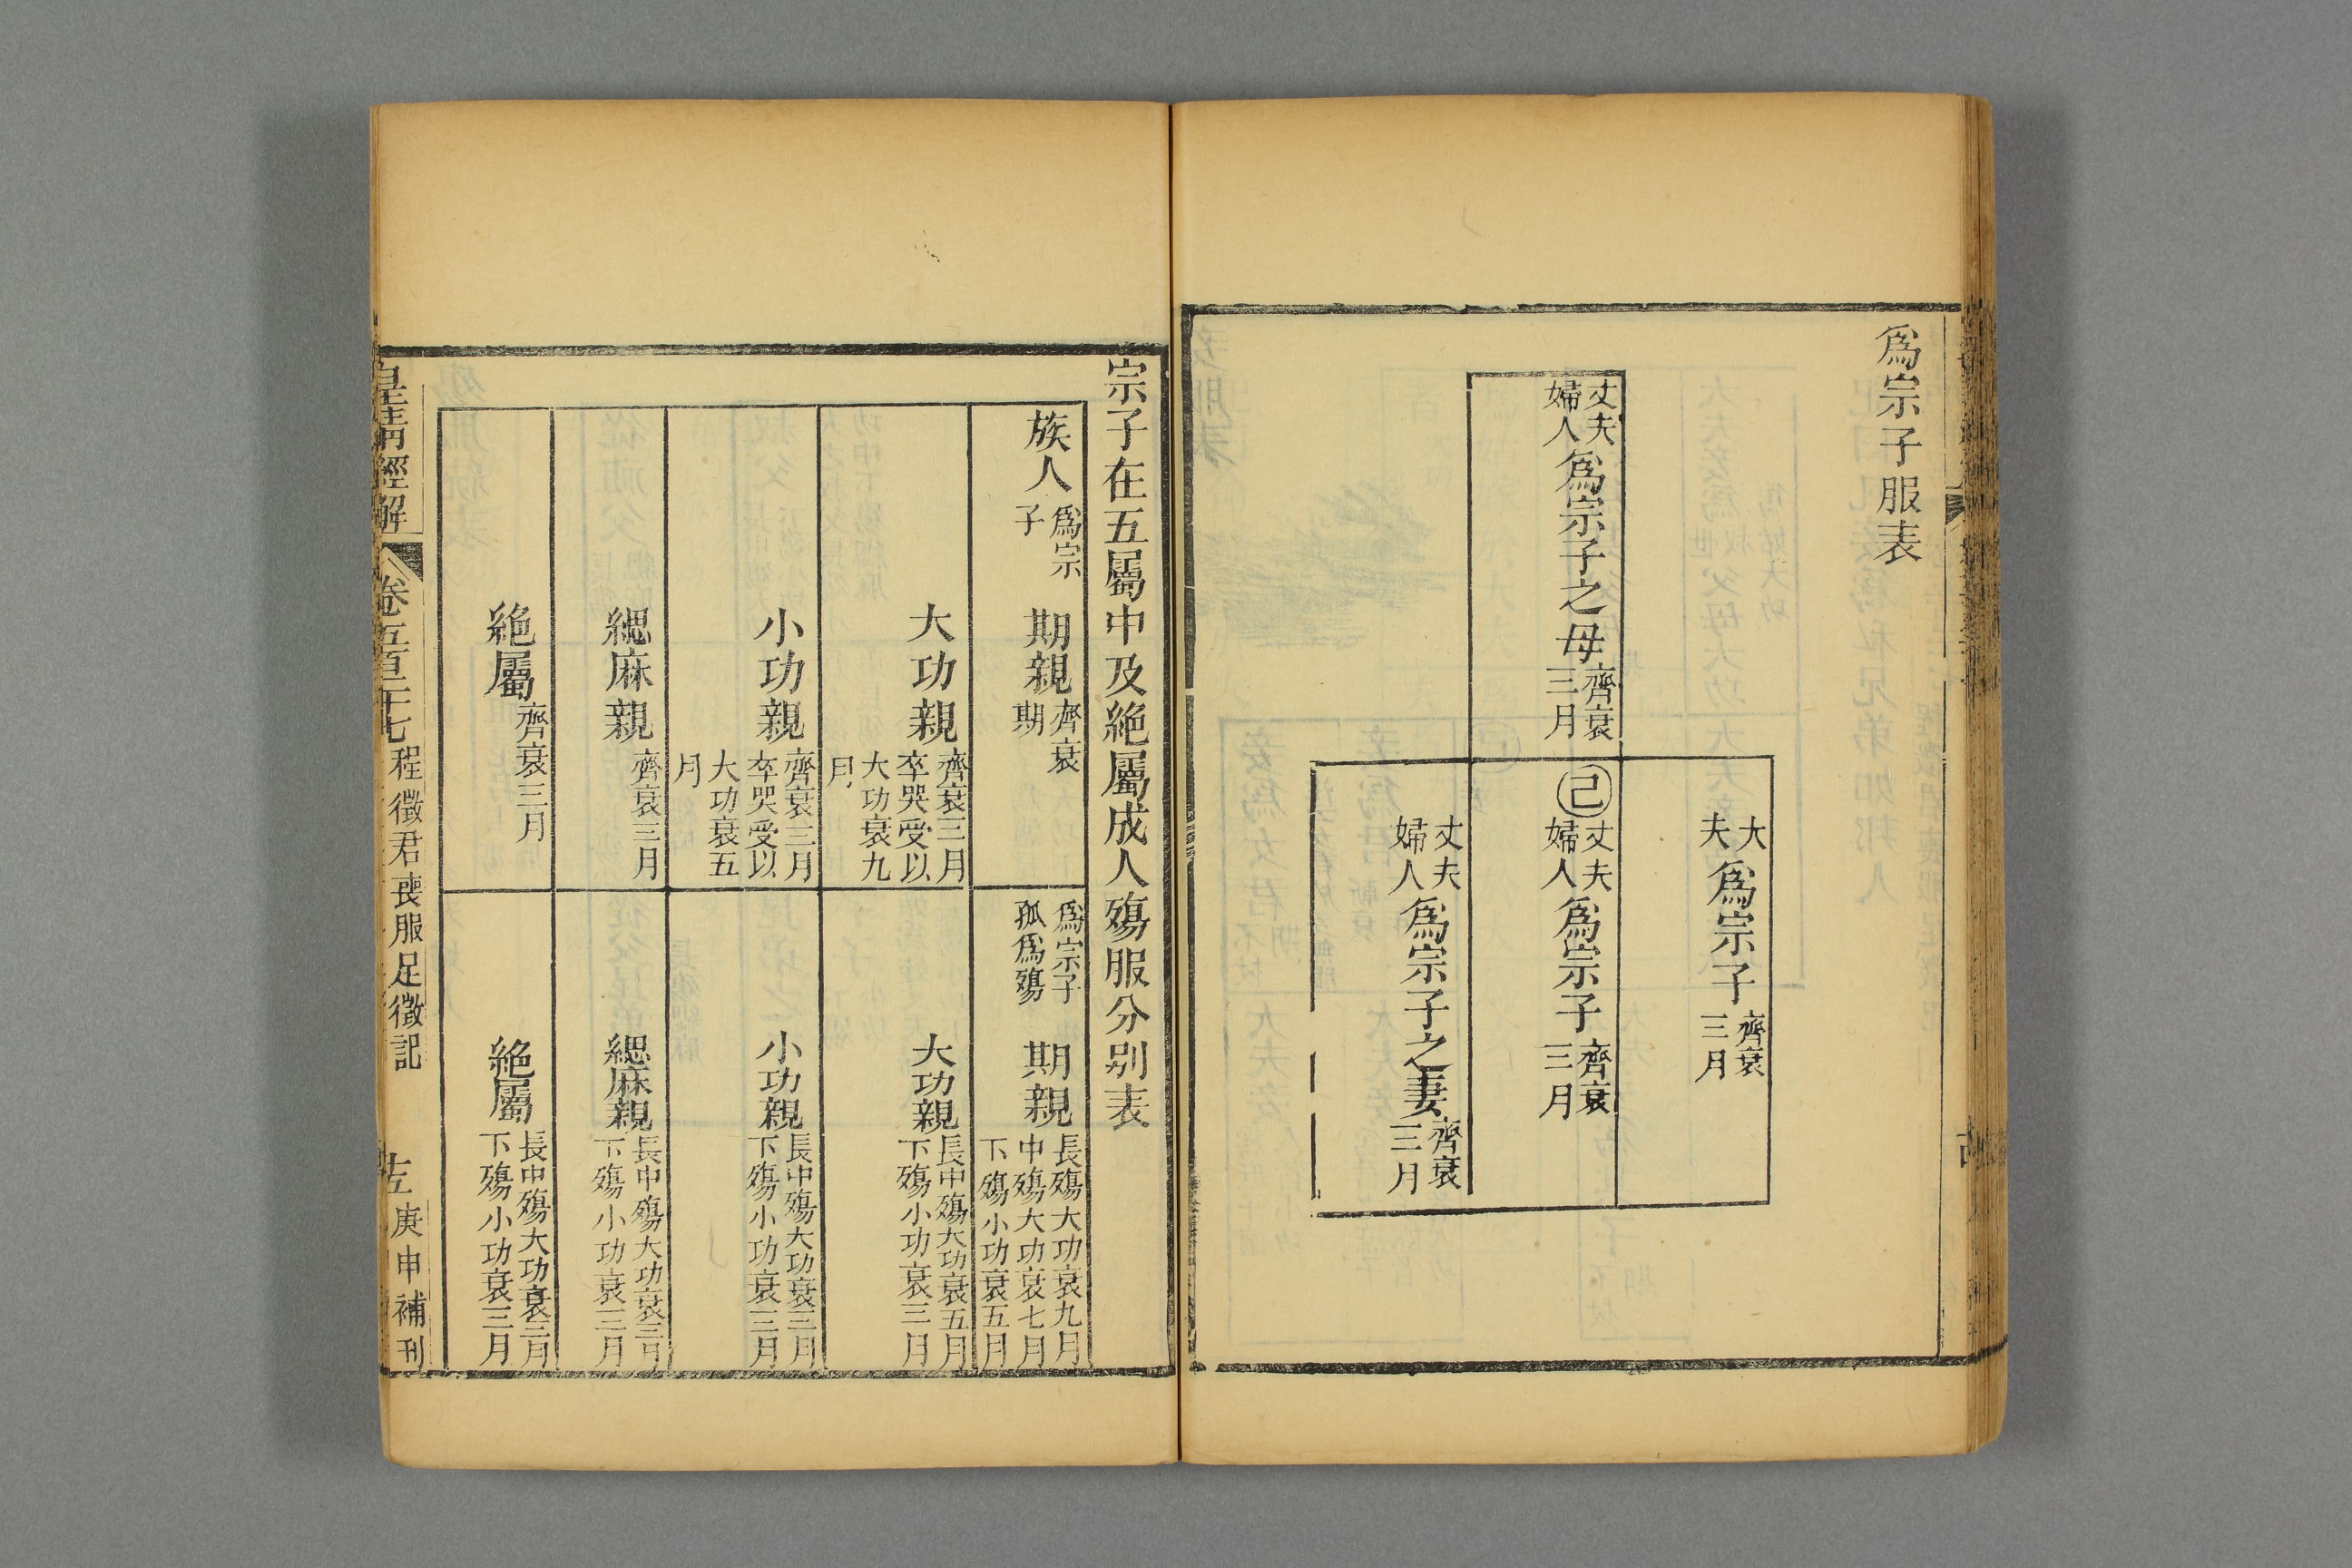 爲宗子服表
大夫爲宗子齊衰三月
丈夫婦人爲宗子之母齊衰三月
己丈夫婦人爲宗子齊衰三月
丈夫婦人爲宗子之妻齊衰三月
宗子在五屬中及絶屬成人殤服分別表
族人爲宗子 期親齊衰期
大功親齊衰三月卒哭受以大功衰九月
小功親齊衰三月卒哭受以大功衰五月
緦麻親齊衰三月
絶屬齊衰三月
爲宗子孤爲殤 期親長殤大功衰九月中殤大功衰七月下殤小功衰五月
大功親長中殤大功衰五月下殤小功衰三月
小功親長中殤大功衰三月下殤小功衰三月
緦麻親長中殤大功衰三月下殤小功衰三月
絶屬長中殤大功衰三月下殤小功衰三月
皇清經解 卷五百二十七 程徵君喪服足徵記 庚申補刊